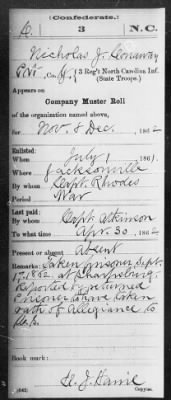 (Confederate.)
C. 3 N.C.
Nicholas J. Conaway
Pvt., Co. G, 3 Reg't North Carolina Inf.
(State Troops.)
Appears on
Company Muster Roll
of the organization named above,
for Nov. & Dec., 1862
Enlisted:
When July 1, 1861.
Where Jacksonville
By whom Capt. Rhodes
Period War
Last paid:
By whom Capt. Atkinson
To what time Apr. 30, 1862
Present or absent Absent
Remarks: Taken prisoner Sept.
17, 1862, at Sharpsburg.
Reported by returned
prisoners to have taken
oath of Allegiance to
U.S.
Book mark:
(642) Copyist.